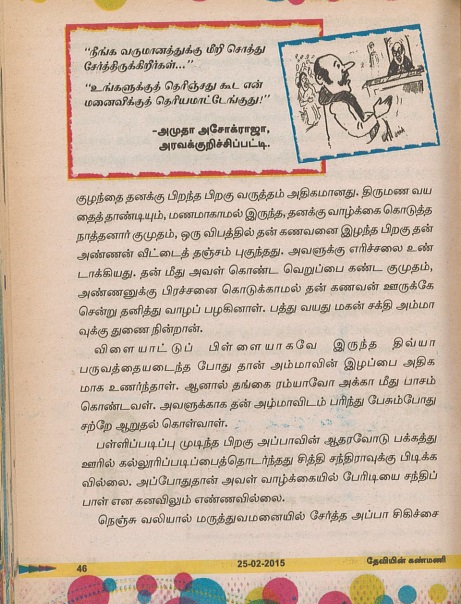 "நீங்க வருமானத்துக்கு மீறி சொத்து
சேர்த்திருக்கிறீர்கள்..."
"உங்களுக்குத் தெரிஞ்சது கூட என்
மனைவிக்குத் தெரியமாட்டேங்குது!"
-அமுதா அசோக்ராஜா,
அரவக்குறிச்சிப்பட்டி.
குழந்தை தனக்கு பிறந்த பிறகு வருத்தம் அதிகமானது. திருமண வய
தைத்தாண்டியும், மணமாகாமல் இருந்த, தனக்கு வாழ்க்கை கொடுத்த
நாத்தனார் குமுதம், ஒரு விபத்தில் தன் கணவனை இழந்த பிறகு தன்
அண்ணன் வீட்டைத் தஞ்சம் புகுந்தது. அவளுக்கு எரிச்சலை உண்
டாக்கியது. தன் மீது அவள் கொண்ட வெறுப்பை கண்ட குமுதம்,
அண்ணனுக்கு பிரச்சனை கொடுக்காமல் தன் கணவன் ஊருக்கே
சென்று தனித்து வாழப் பழகினாள். பத்து வயது மகன் சக்தி அம்மா
வுக்கு துணை நின்றான்.
விளையாட்டுப் பிள்ளையாகவே இருந்த திவ்யா
பருவத்தையடைந்த போது தான் அம்மாவின் இழப்பை அதிக
மாக உணர்ந்தாள். ஆனால் தங்கை ரம்யாவோ அக்கா மீது பாசம்
கொண்டவள். அவளுக்காக தன் அம்மாவிடம் பரிந்து பேசும்போது
சற்றே ஆறுதல் கொள்வாள்.
பள்ளிப்படிப்பு முடிந்த பிறகு அப்பாவின் ஆதரவோடு பக்கத்து
ஊரில் கல்லூரிப்படிப்பைத்தொடர்ந்தது சித்தி சந்திராவுக்கு பிடிக்க
வில்லை. அப்போதுதான் அவள் வாழ்க்கையில் பேரிடியை சந்திப்
பாள் என கனவிலும் எண்ணவில்லை.
நெஞ்சு வலியால் மருத்துவமனையில் சேர்த்த அப்பா சிகிச்சை
46 25-02-2015 தேவியின் கண்மணி